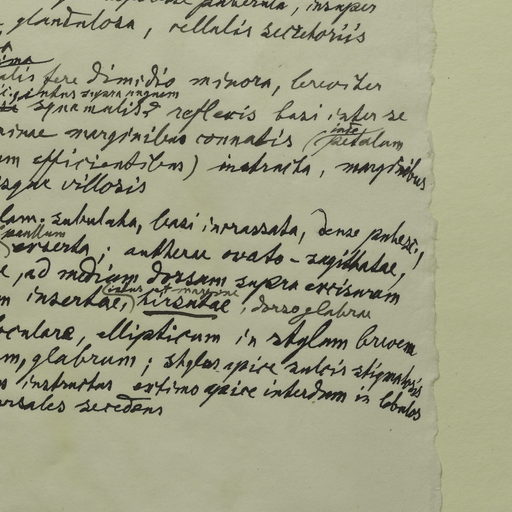 puberula, insuper
glandulosa, cellulis secretoriis
alis fere dimidio minora, breviter
intus supra unguem
squamulis reflexis basi inter se
marginibus connatis (
inter
petalum
um efficientibus) instructa, marginibus
isque villosis
subulata, basi incrassata, dense pubesc.,
exserta; antherae ovato-sagittatae,
e, ad medium dorsum supra excisuram
intus et margine
m insertae, hirsutae, dorso glabrae
oculare, ellipticum in stylum brevem
um, glabrum; stylus apice sulcis stigmatosis
instructus extimo apice interdum in lobulos
ersales secedens